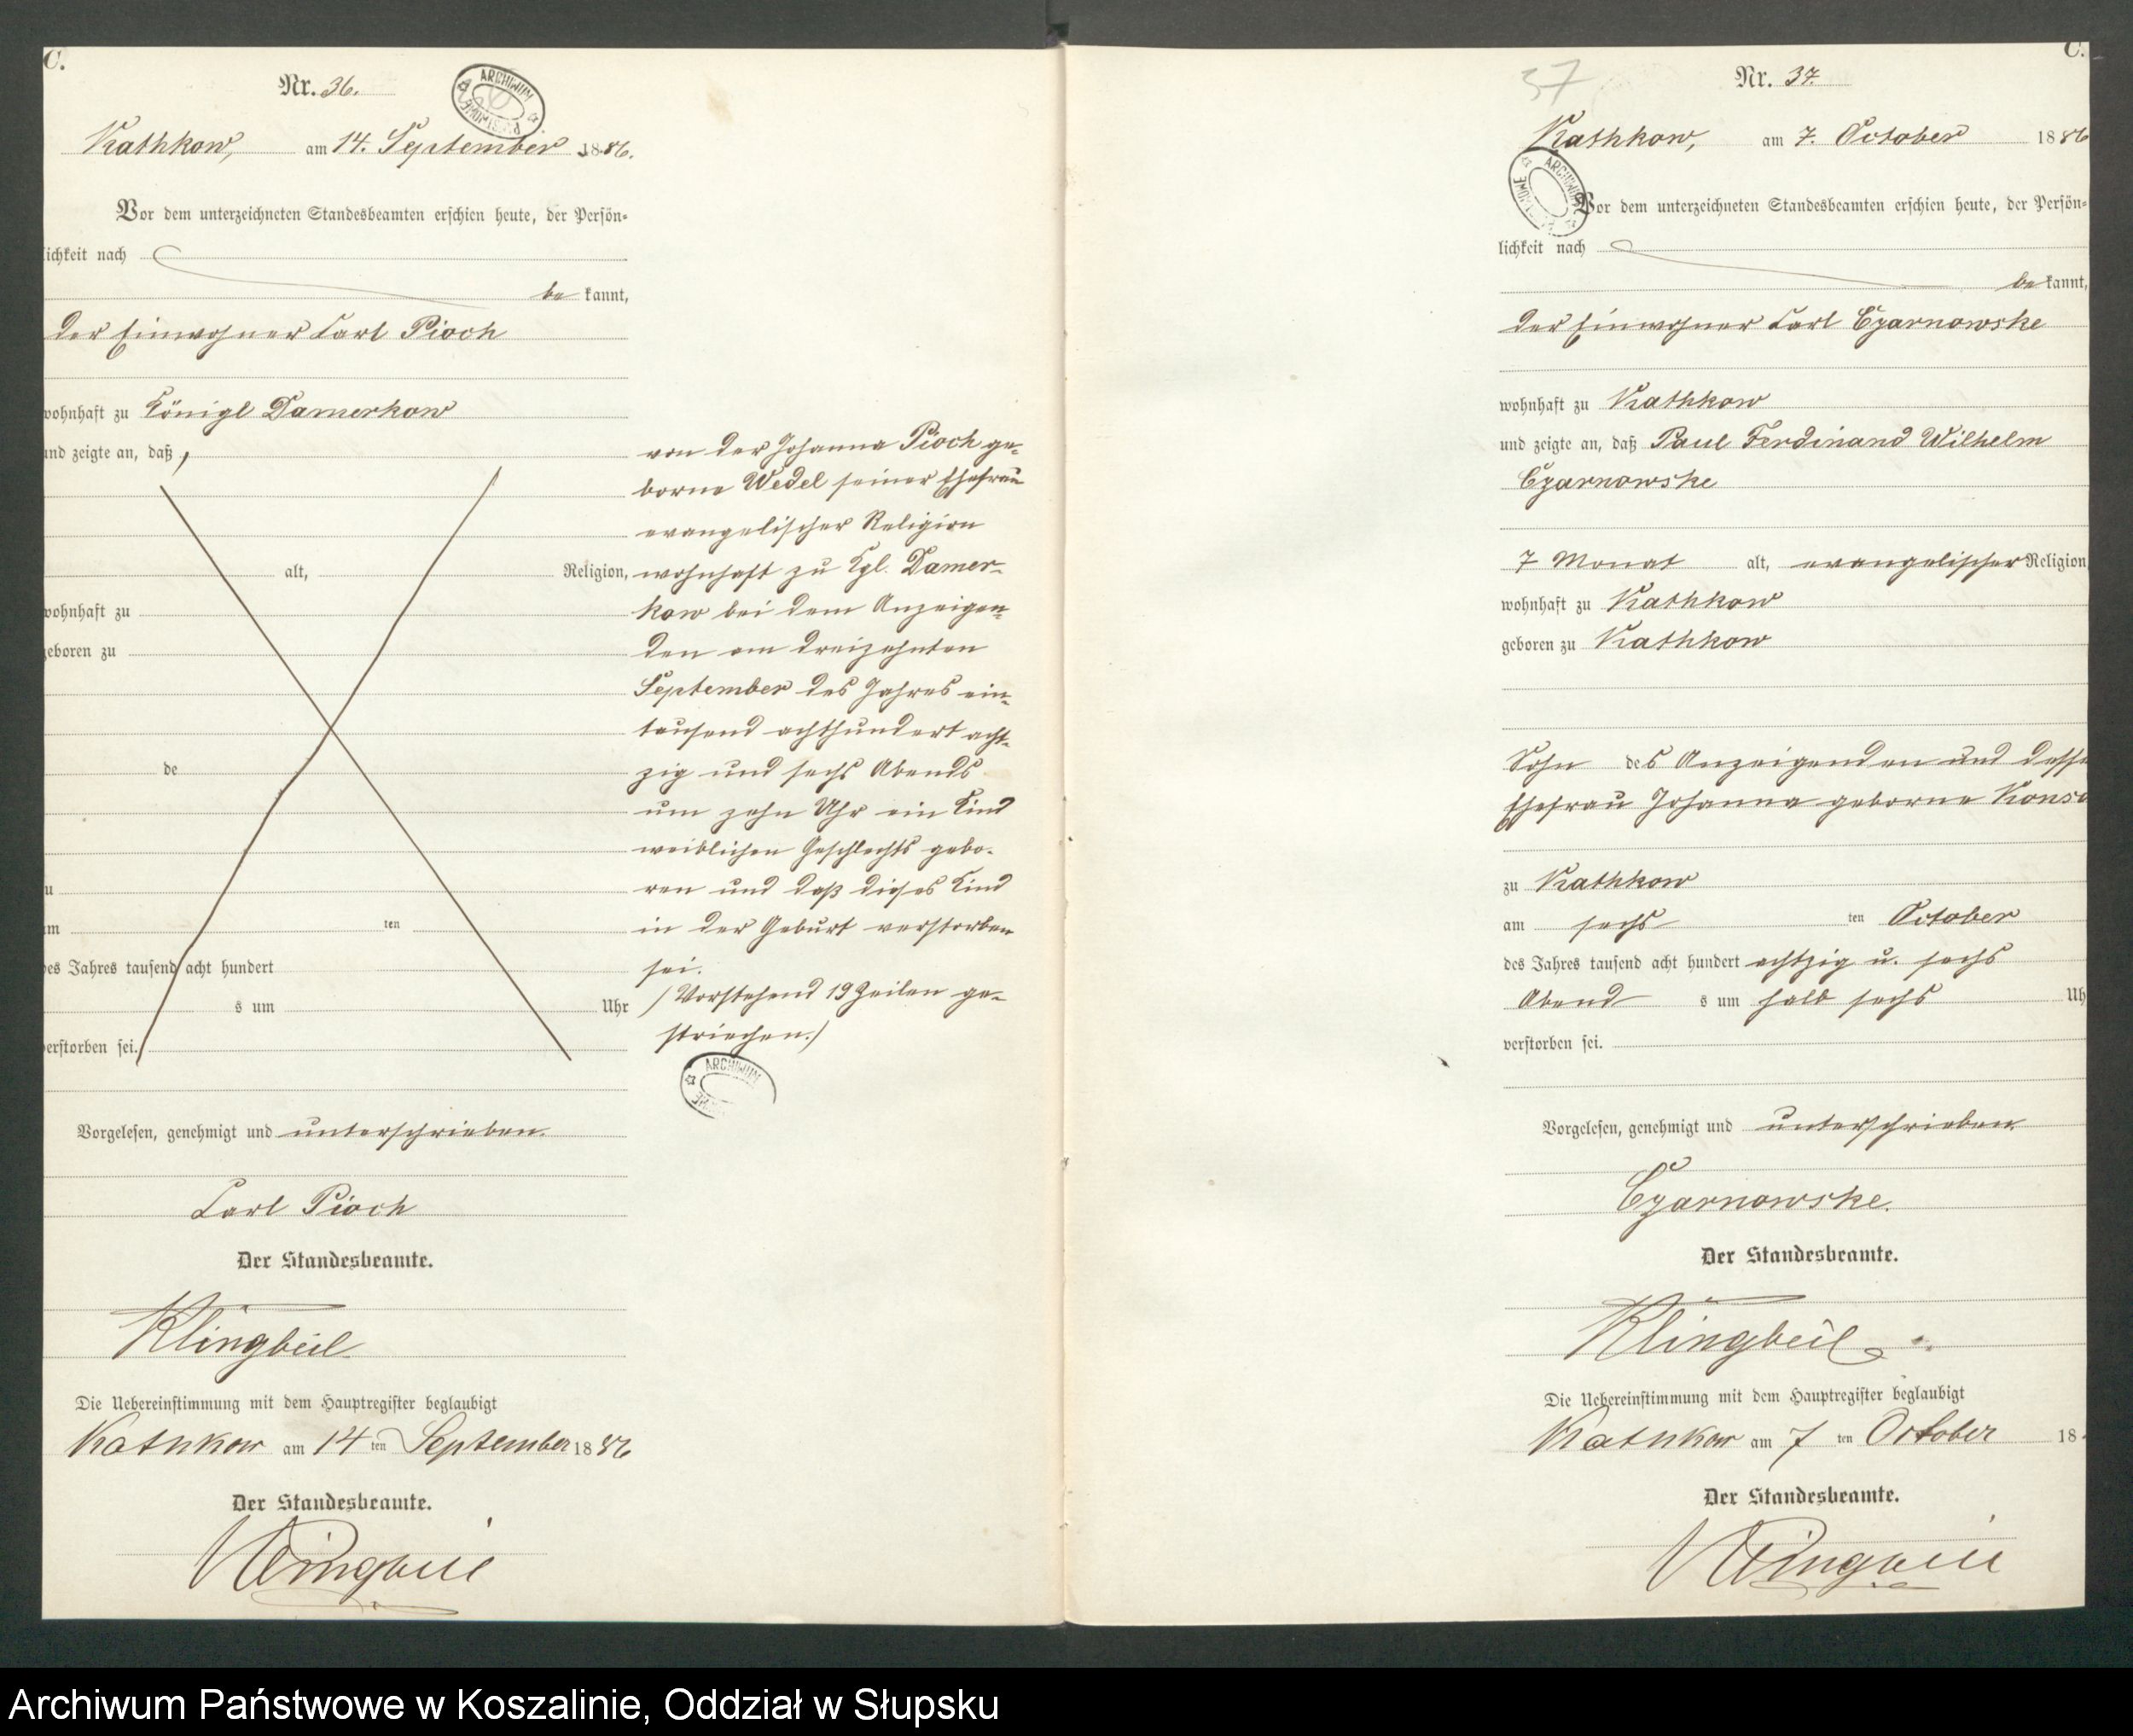 C.
Nr. 36.
ARCHIWUM
Kathkow, am 14. September 1886.
Vor dem unterzeichneten Standesbeamten erschien heute, der Persön-
lichkeit nach
be kannt,
der Einwohner Carl Pioch
wohnhaft zu Königl Damerkow
und zeigte an, daß,
von der Johanna Pioch ge-
borne Wedel seiner Ehefrau
evangelischer Religion
alt, Religion, wohnhaft zu Kgl. Damer-
wohnhaft zu kow bei dem Anzeigen-
geboren zu den am dreizehnten
September des Jahres ein-
tausend achthundert acht-
de zig und sechs Abends
um zehn Uhr ein Kind
weiblichen Geschlechts gebo-
zu ren und daß dieses Kind
am ten in der Geburt verstorben
des Jahres tausend acht hundert sei.
s um Uhr /Vorstehend 19 Zeilen ge-
verstorben sei. strichen./
ARCHIWUM
Vorgelesen, genehmigt und unterschrieben.
Carl Pioch
Der Standesbeamte.
Klingbeil
Die Uebereinstimmung mit dem Hauptregister beglaubigt
Kathkow am 14 ten September 1886
Der Standesbeamte.
Klingbeil
C.
37
Nr. 37.
Kathkow, am 7. October 1886
ARCHIWUM
Vor dem unterzeichneten Standesbeamten erschien heute, der Persön-
lichkeit nach
be kannt,
der Einwohner Carl Czarnowske
wohnhaft zu Kathkow
und zeigte an, daß Paul Ferdinand Wilhelm
Czarnowske
7 Monat alt, evangelischer Religion
wohnhaft zu Kathkow
geboren zu Kathkow
Sohn des Anzeigenden und desse
Ehefrau Johanna geborne
zu Kathkow
am sechs ten October
des Jahres tausend acht hundert achtzig u. sechs
Abend s um halb sechs Uh
verstorben sei.
Vorgelesen, genehmigt und unterschrieben.
Czarnowske.
Der Standesbeamte.
Klingbeil
Die Uebereinstimmung mit dem Hauptregister beglaubigt
Kathkow am 7 ten October 18
Der Standesbeamte.
Klingbeil
Archiwum Państwowe w Koszalinie, Oddział w Słupsku